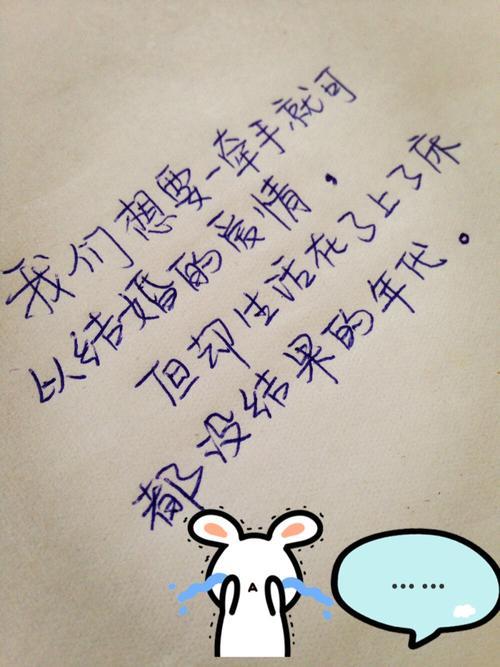 我们想要一牵手就可
以结婚的爱情，
但却生活在了上了床
都没结果的年代。
……